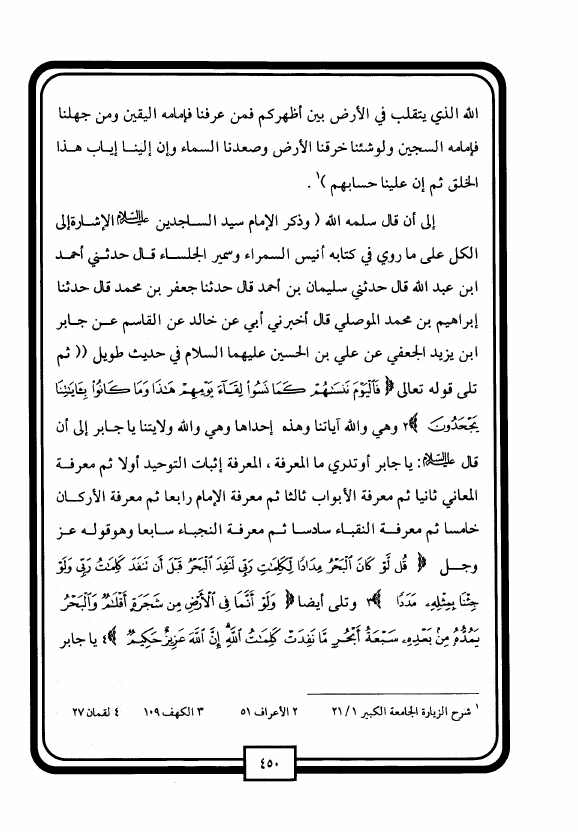 الله الذي يتقلب في الأرض بين أظهركم فمن عرفنا فإمامه اليقين ومن جهلنا
فإمامه السجين ولوشئنا خرقنا الأرض وصعدنا السماء وإن إلينا إياب هذا
الخلق ثم إن علينا حسابهم )١ .
إلى أن قال سلمه الله ( وذكر الإمام سيد الساجدين عليه السلام الإشارة إلى
الكل على ما روي في كتابه أنيس السمراء وسمير الجلساء قال حدثني أحمد
ابن عبد الله قال حدثني سليمان بن أحمد قال حدثنا جعفر بن محمد قال حدثنا
إبراهيم بن محمد الموصلي قال أخبرني أبي عن خالد عن القاسم عن جابر
ابن يزيد الجعفي عن علي بن الحسين عليهما السلام في حديث طويل (( ثم
تلى قوله تعالى ﴿ فَٱلْيَوْمَ نَنسَىٰهُمْ كَمَا نَسُوا۟ لِقَآءَ يَوْمِهِمْ هَٰذَا وَمَا كَانُوا۟ بِـَٔايَٰتِنَا
يَجْحَدُونَ ﴾٢ وهي والله آياتنا وهذه إحداها وهي والله ولايتنا يا جابر إلى أن
قال عليه السلام : يا جابر أوتدري ما المعرفة ، المعرفة إثبات التوحيد أولا ثم معرفة
المعاني ثانيا ثم معرفة الأبواب ثالثا ثم معرفة الإمام رابعا ثم معرفة الأركان
خامسا ثم معرفة النقباء سادسا ثم معرفة النجباء سابعا وهوقوله عز
وجل ﴿ قُل لَّوْ كَانَ ٱلْبَحْرُ مِدَادًا لِّكَلِمَٰتِ رَبِّى لَنَفِدَ ٱلْبَحْرُ قَبْلَ أَن تَنفَدَ كَلِمَٰتُ رَبِّى وَلَوْ
جِئْنَا بِمِثْلِهِۦ مَدَدًا ﴾٣ وتلى أيضا ﴿ وَلَوْ أَنَّمَا فِى ٱلْأَرْضِ مِن شَجَرَةٍ أَقْلَٰمٌ وَٱلْبَحْرُ
يَمُدُّهُۥ مِنۢ بَعْدِهِۦ سَبْعَةُ أَبْحُرٍ مَّا نَفِدَتْ كَلِمَٰتُ ٱللَّهِ إِنَّ ٱللَّهَ عَزِيزٌ حَكِيمٌ ﴾٤ يا جابر
١ شرح الزيارة الجامعة الكبير ١/ ٢١ ٢ الأعراف ٥١ ٣ الكهف ١٠٩ ٤ لقمان ٢٧
٤٥٠